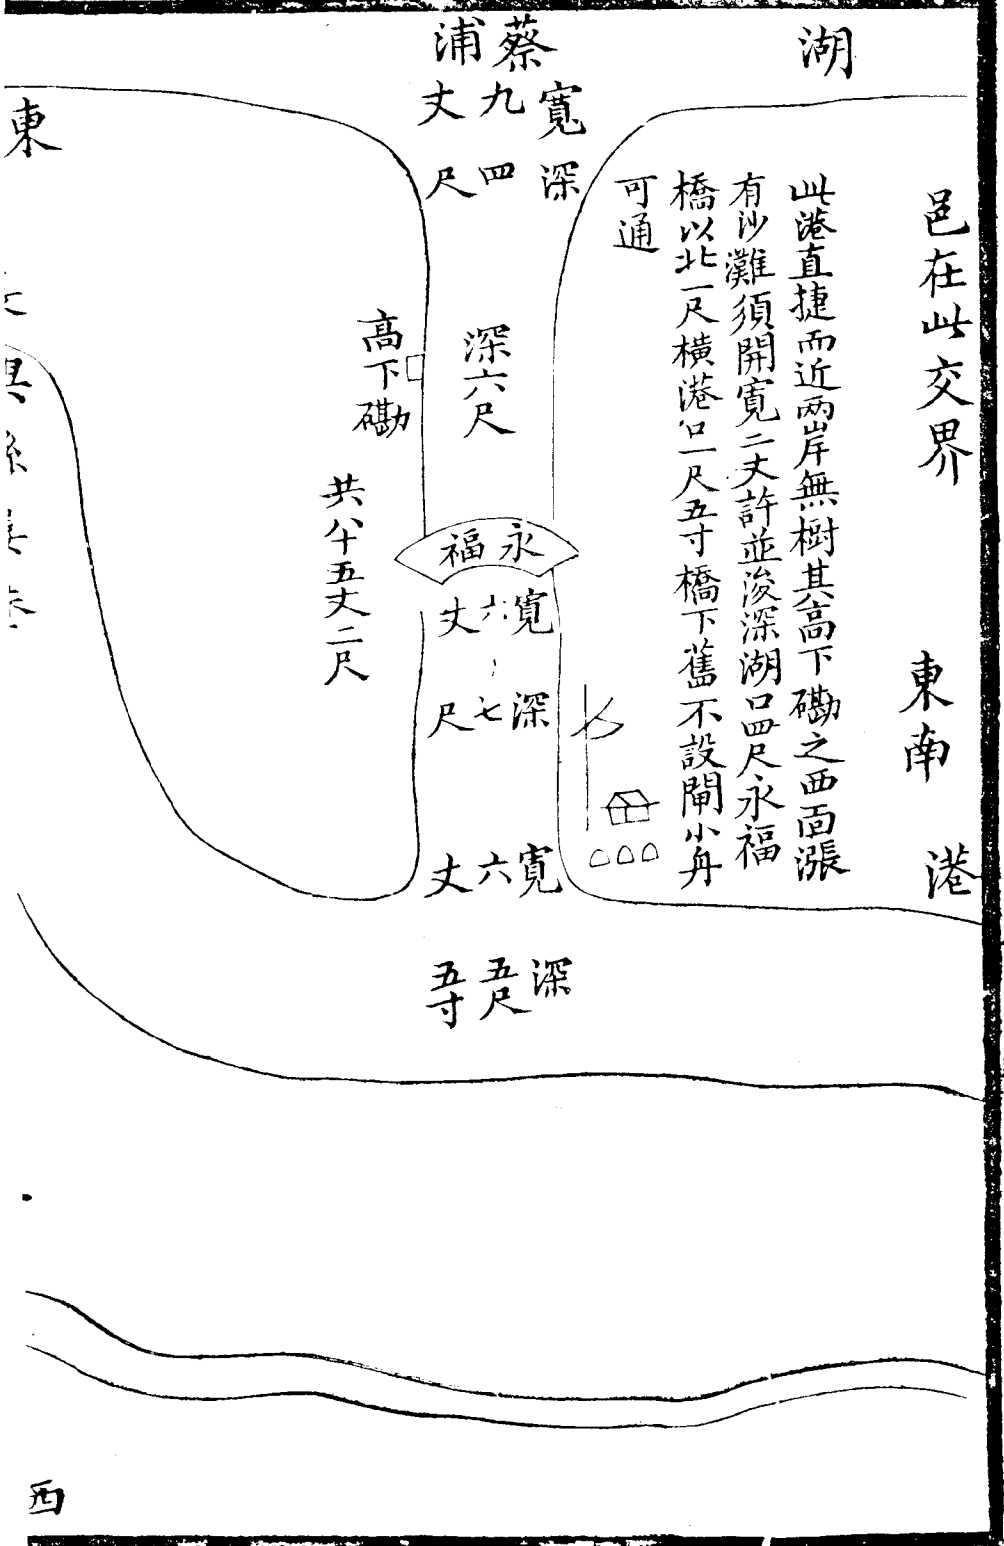 湖
邑在此交界
東南港
此港直捷而近兩岸無樹其高下磡之西面漲
有沙灘須開寬二丈許並浚深湖口四尺永福
橋以北一尺橫港口一尺五寸橋下舊不設閘小舟
可通
蔡浦
寬九丈
深四尺
深六尺
永福
寬六丈
深七尺
寬六丈
深五尺五寸
高下磡
共八十五丈二尺
東
西